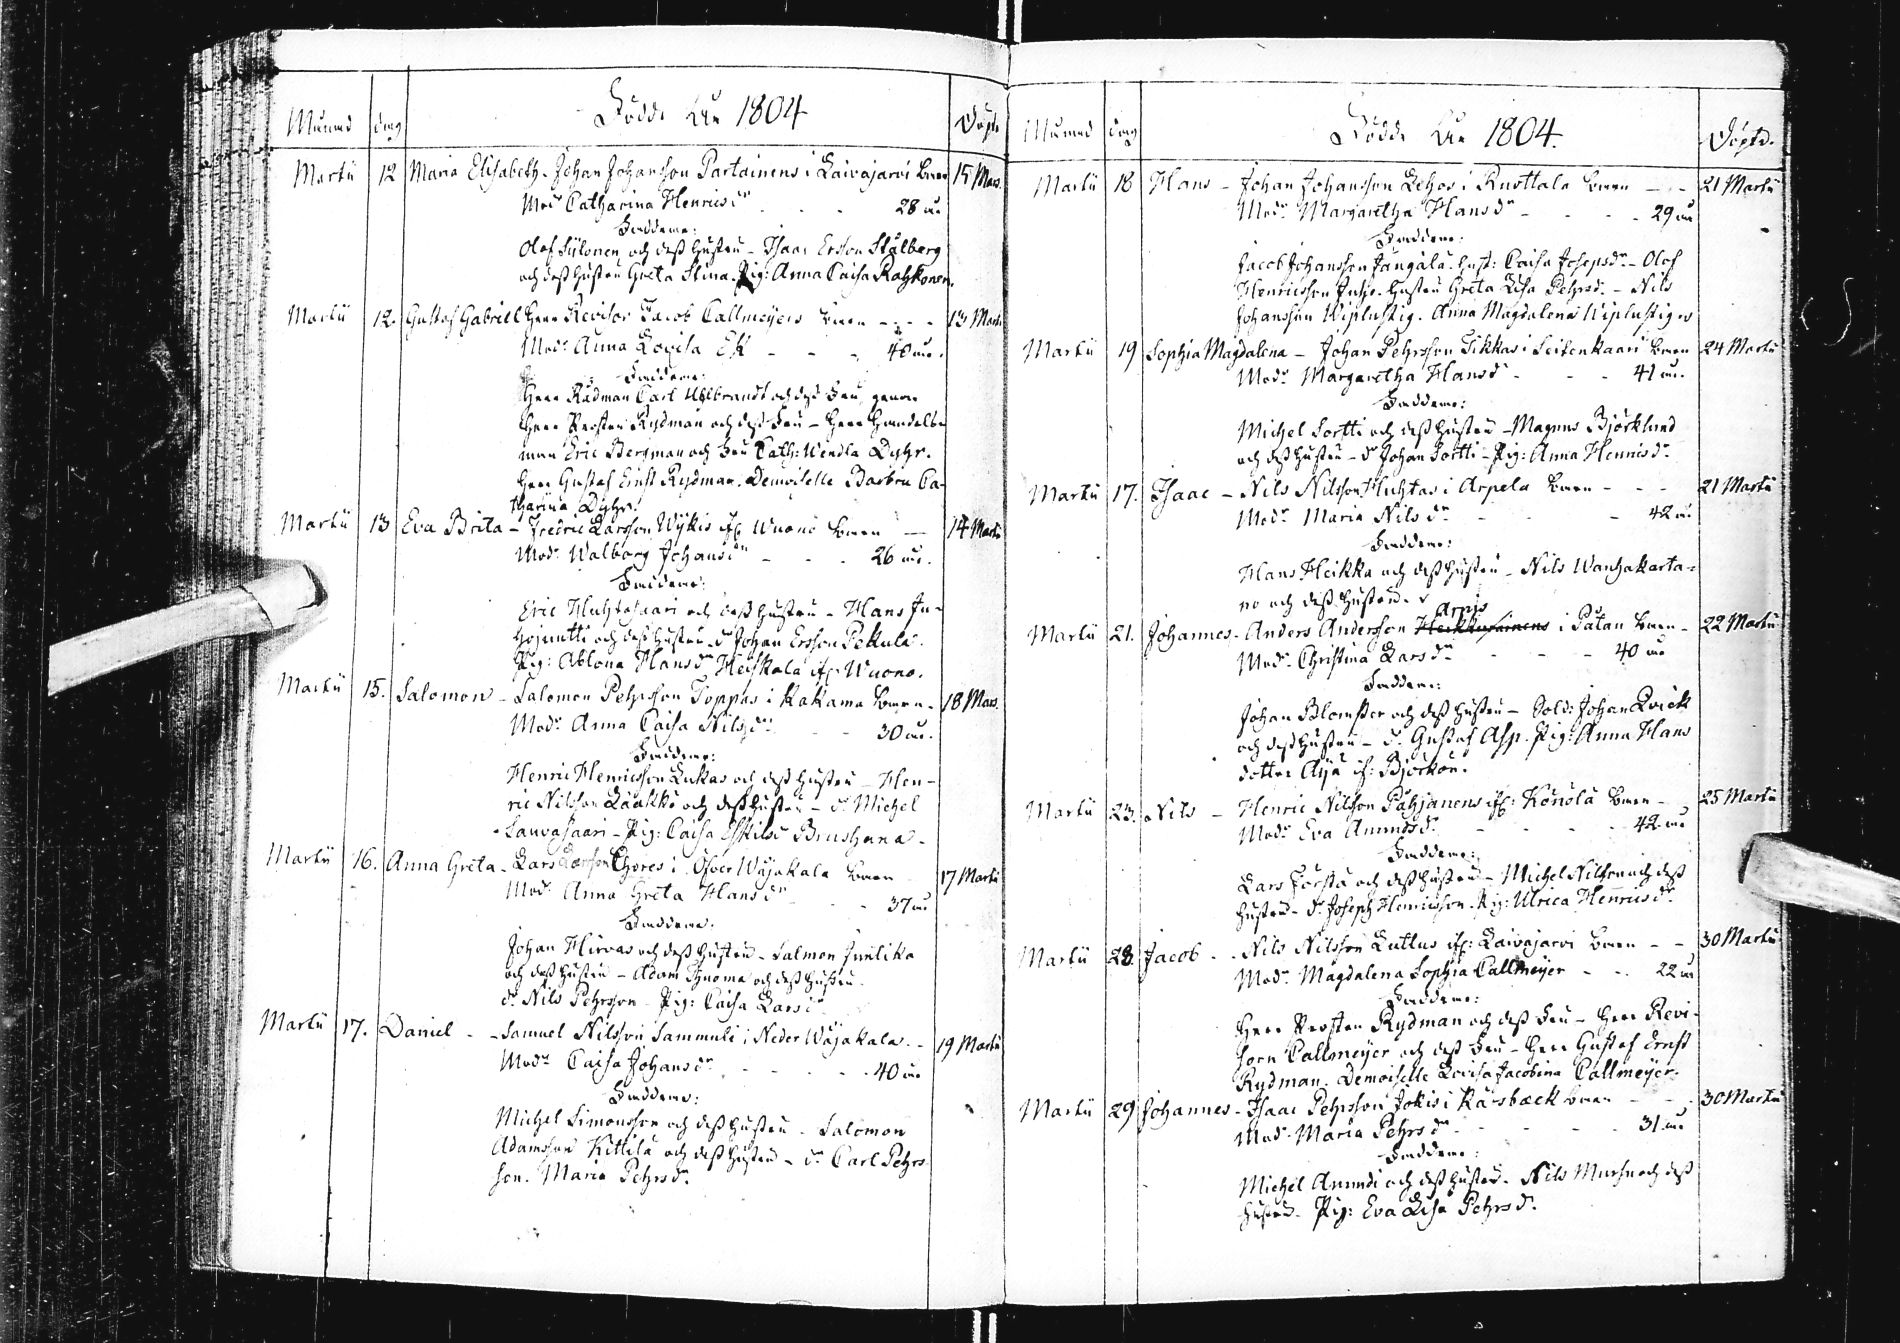 Månad dag Födde År 1804 Döpte
Martii 12 Maria Elisabeth. Johan Johansson Partainens i Laivajarvi barn 15 Mars.
Mod. Catharina Henricsdr 28 år
Faddrar:
Olof Siilonen och dess hustru – Isaac Ersson Stålberg
och dess hustru Greta Stina. Pig: Anna Caisa Ratzkonen.
Martii 12. Gustaf Gabriell Herr Revisor Jacob Callmeyers barn 13 Mart.
Modr Anna Lovisa Ek 40 år.
Faddrar:
Herr Rådman Carl och dess Fru, genom
Herr Prosten Rydman och dess Fru – Herr Handels-
man Eric Bergman och Fru Cath: Wendla Dyhr.
Herr Gustaf Ernst Rydman. Demoiselle Barbru Ca-
tharina Dyhr.
Martii 13 Eva Brita – Fredric Larsson Wykis if. Wuono barn 14 Marti
Modr Walborg Johansdr 26 år.
Faddrar:
Eric Huhtasaari och dess hustru – Hans Ju-
och dess hustru – d. Johan Ersson Pekula.
Pig: Ablona Hansdr Heiskala if. Wuono.
Martii 15. Salomon – Salomon Pehrsson Toppas i Kakama barn 18 Mars.
Modr Anna Caisa Nilsdr 30 år.
Faddrar:
Henric Henricsson Lukas och dess hustru – Hen-
ric Nilsson Laakko och dess hustru – d. Michel
Sauvasaari – Pig: Caisa Eskilsd
Martii 16. Anna Greta – Lars Larsson i Öfver Wäjakala barn 17 Martii
Modr Anna Greta Hansdr 37 år
Faddrar:
Johan Hirvas och dess hustru – Salmon Junlika
och dess hustru – Adam Thuoma och dess hustru
d. Nils Pehrsson – Pig: Caisa Larsdr
Martii 17. Daniel – Samuel Nilsson Sammuli i Neder Wäjakala 19 Martii
Modr Caisa Johansdr 40 år
Faddrar:
Michel Simonsson och dess hustru – Salomon
Adamsson Kittilä och dess hustru – d. Carl Pehrs-
son. Maria Pehrsdr
Månad dag Födde År 1804. Döpte.
Martii 18 Hans – Johan Johansson Lehos i Ruottala barn 21 Martii
Modr Margaretha Hansdr 29 år
Faddrar:
Jacob Johansson Jangälä. hust: Caisa Josepsdr – Olof
Henricsson hustru Greta Lisa Pehrsd. – Nils
Johansson Wiplustig. Anna Magdalena Wiplustig
Martii 19 Sophia Magdalena – Johan Pehrsson Sikkas i Seitenkaari barn 24 Martii
Modr Margaretha Hansdr 41 år.
Faddrar:
Michel Sortti och dess hustru – Magnus Björklund
och dess hustru – d. Johan Sortti – Pig: Anna Henricsdr
Martii 17. Isaac – Nils Nilsson Huhtas i Arpela barn 21 Martii
Modr Maria Nilsdr 42 år
Faddrar:
Hans Heikka och dess hustru – Nils Wanhakarta-
no och dess hustru.
Arpis
Martii 21. Johannes – Anders Andersson i Patan barn 22 Martii
Modr Christina Larsdr 40 år
Faddrar:
Johan Blomster och dess hustru – Sold: Johan Qvick
och dess hustru – d. Gustaf Asp. Pig: Anna Hans
dotter Aijä if: Björkön.
Martii 23. Nils – Henric Nilsson Päijänens if: Könölä barn 25 Martii
Modr Eva Amundsdr 42 år
Faddrar:
Lars Forsta och dess hustru – Michel Nilsson och dess
hustru – d. Joseph Henricsson. Pig: Ulrica Henricsdr
Martii 28. Jacob – Nils Nilsson Luttus if: Laivajarvi barn 30 Martii
Modr Magdalena Sophia Callmeyer 22 år
Faddrar:
Herr Prosten Rydman och dess Fru – Herr Revi-
sorn Callmeyer och dess Fru – Herr Gustaf Ernst
Rydman. Demoiselle Lovisa Jacobina Callmeyer.
Martii 29 Johannes – Isaac Pehrsson Jokis i Karsbäck barn 30 Martii
Modr Maria Pehrsdr 31 år
Faddrar:
Michel Amundi och dess hustru. Nils och dess
hustru. Pig: Eva Lisa Pehrsdr